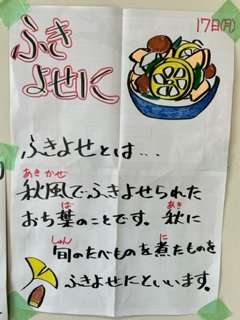 17日(月)
ふき
よせに
ふきよせとは…
あきかぜ
秋風でふきよせられた
は
おち葉のことです。秋に
あき
しゅん
に
旬のたべものを煮たものを
ふきよせにといいます。